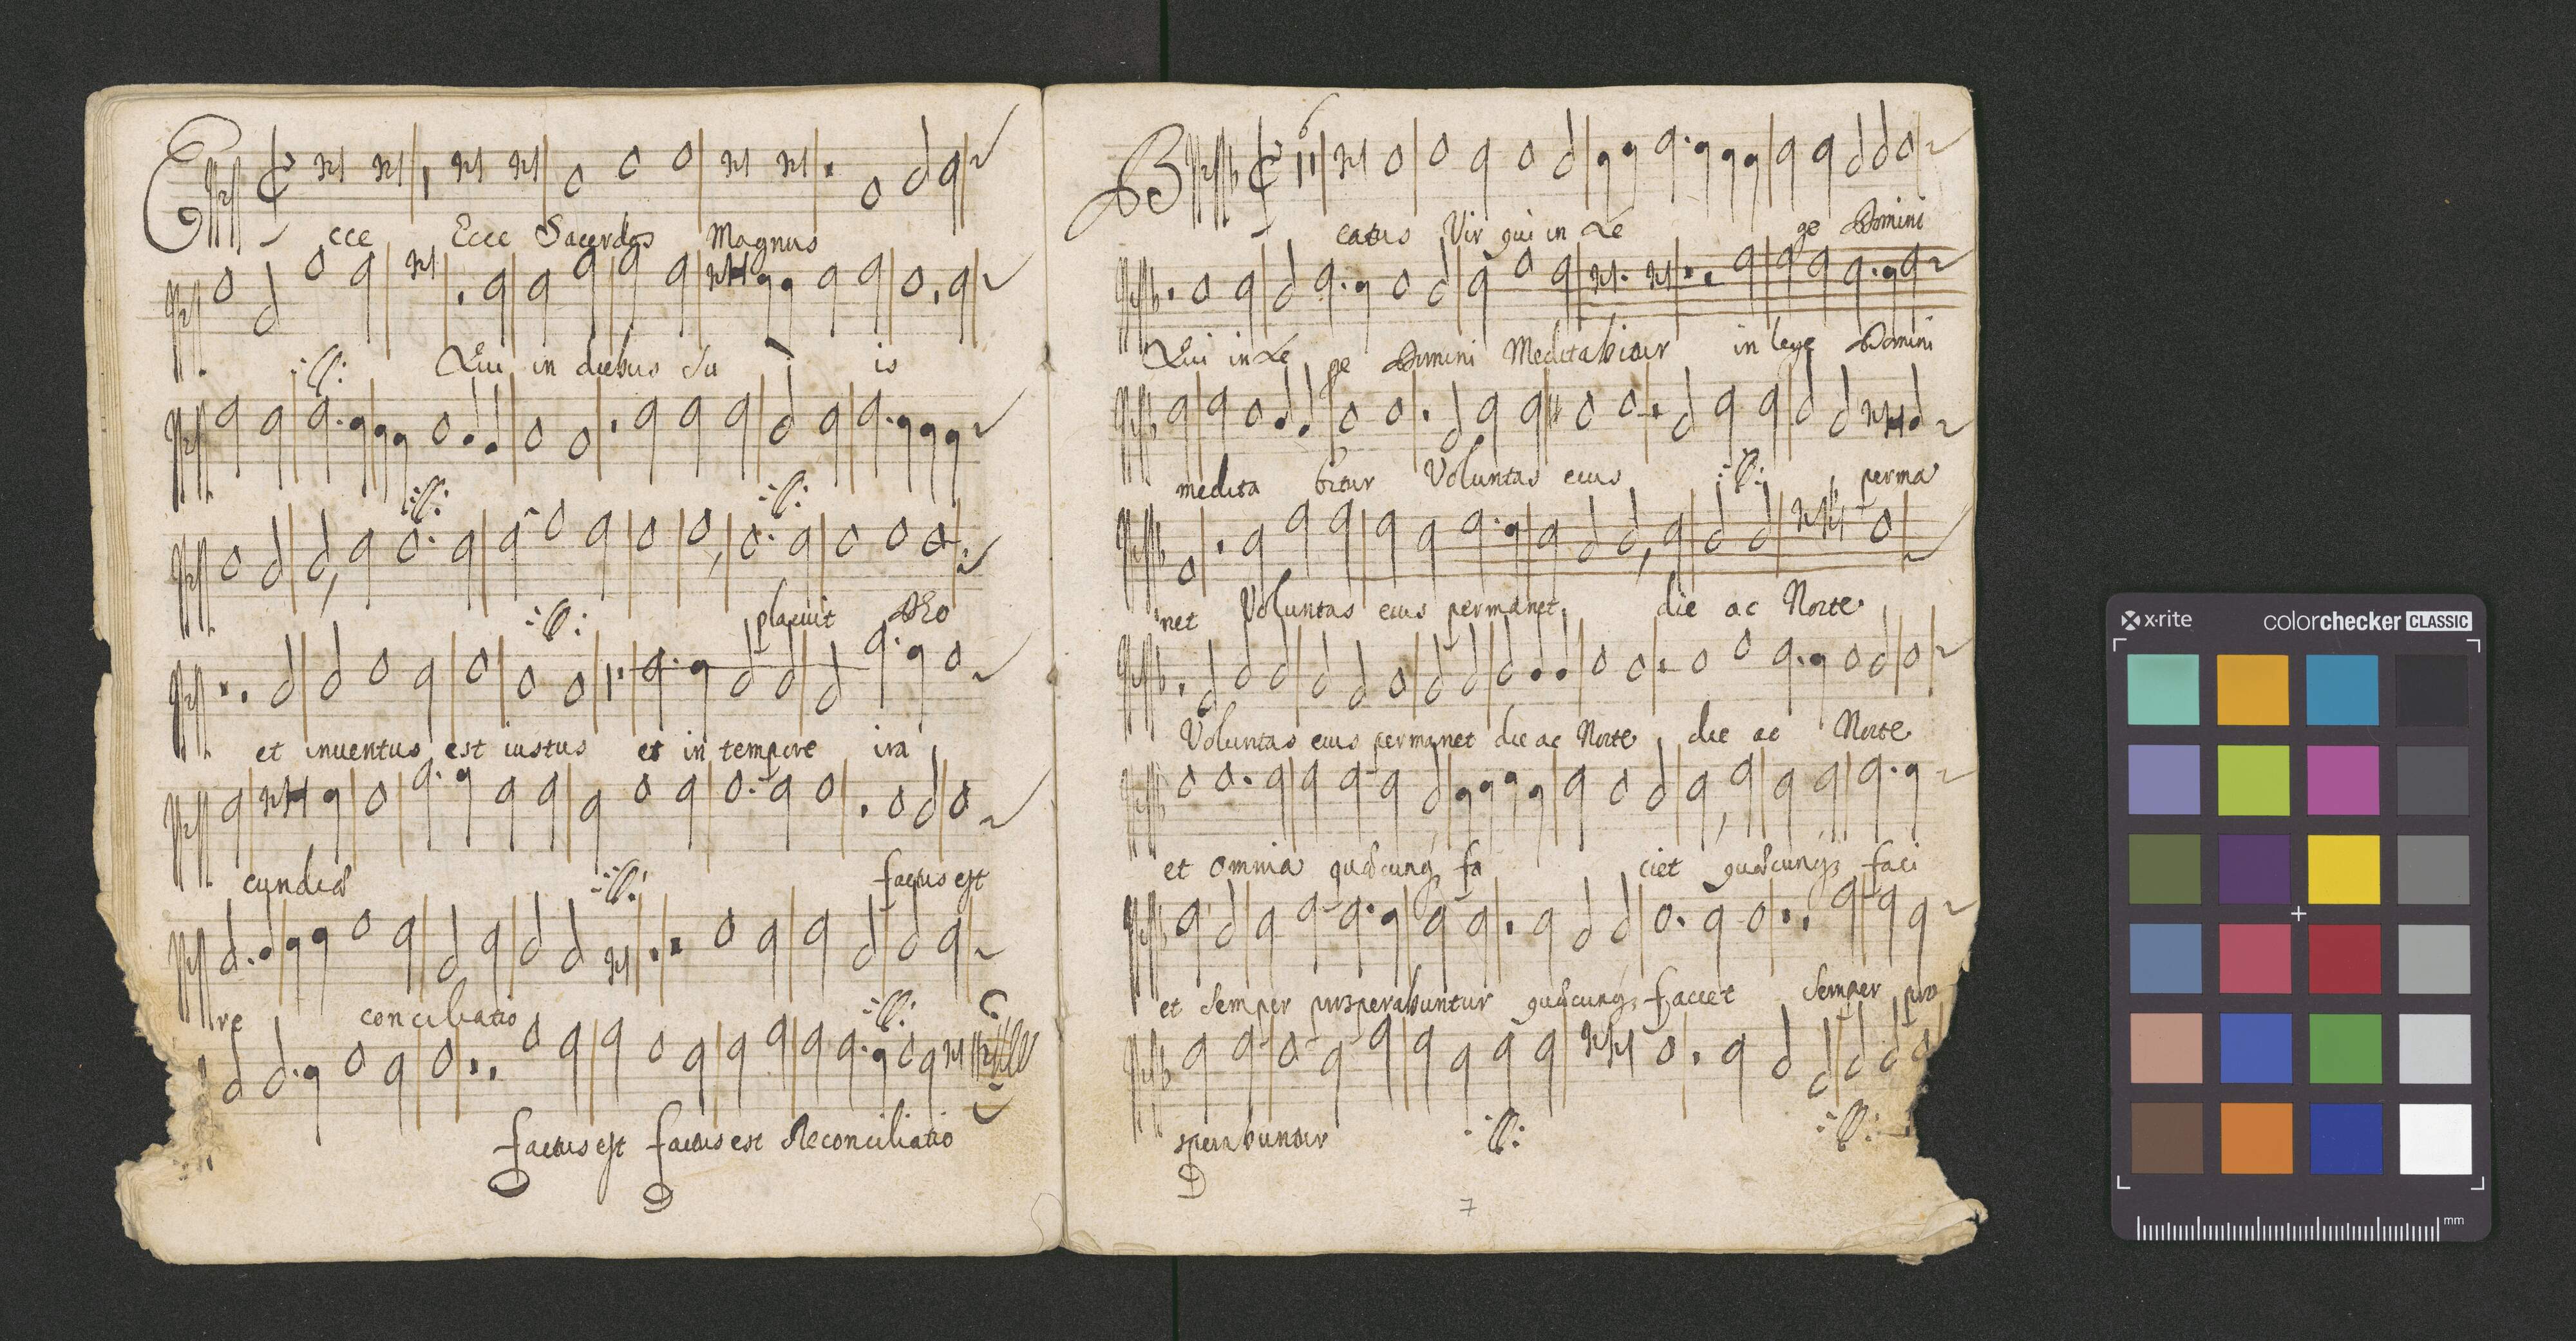 Ecce Ecce Sacerdos Magnus
:||: Qui in diebus Su is
:||: :||:
:||: placuit DEo
et inventus est iustus et in tempore ira
cundiæ :||: factus est
re conciliatio :||:
factus est factus est Reconciliatio
6
B catus Vir qui in Le ge Domini
Qui in Le ge Domini Meditabitur in lege Domini
medita bitur Voluntas eius :||: perma
net Voluntas eius permanet die ac Nocte
Voluntas eius permanet die ac Nocte die ac Nocte
et omnia quæcunq3 fa ciet quæcunq3 faci
et semper prosperabuntur quæcunq3 faciet semper pro
sperabuntur :||: :||:
7
x·rite colorchecker CLASSIC
mm